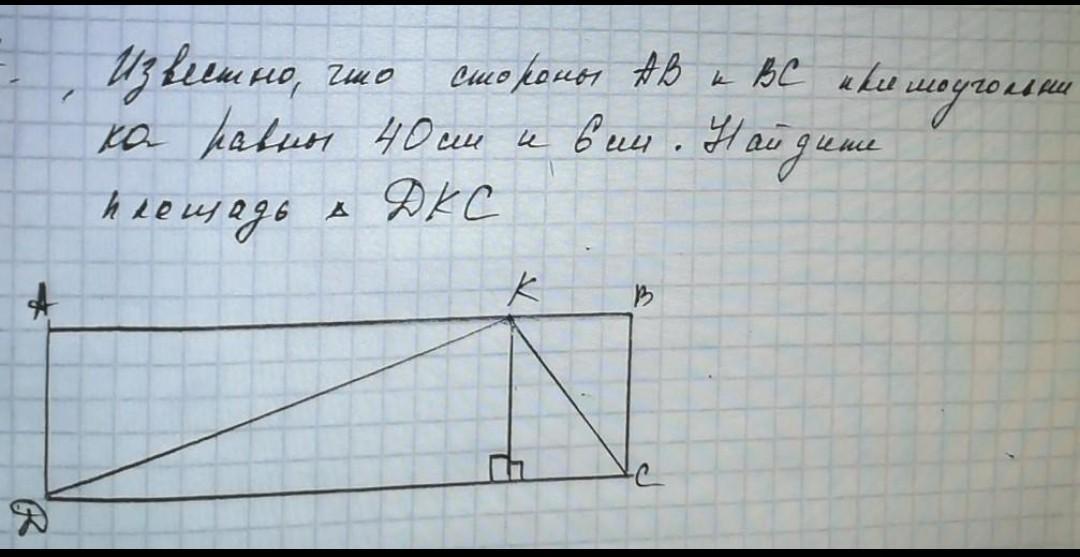 Известно, что стороны АВ и ВС прямоугольни
ка равны 40 см и 6 см. Найдите
площадь △ ДКС
А К В
Д С